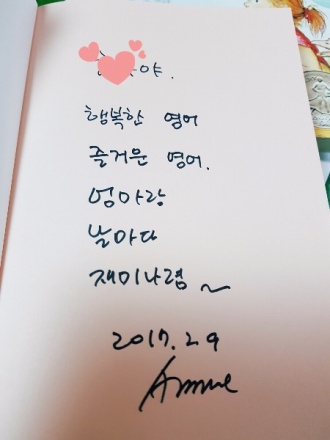 야.
행복한 영어
즐거운 영어.
엄마랑
날마다
재미나렴~
2017.2.9